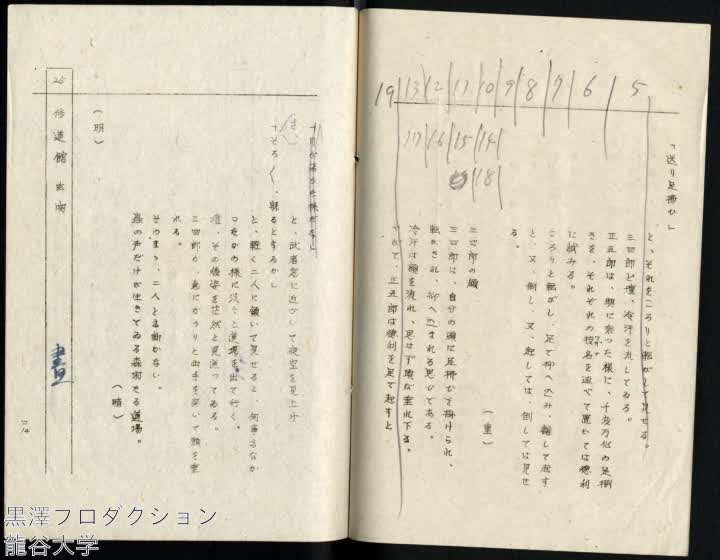 5
6
7
8
9
10
11
12
13
19
14
15
16
17
18
「送り足拂ひ」
と、それをころりと転がして見せる。
三四郎と壇、冷汗を流してゐる。
正五郎は、興に乗った様に、千変万化の足拂
きを、それぞれの技名を述べて置いては徳利
に試みる。
ころりと転がし、足で押へ込み、離して起す
と、又、倒し、又、起しては、倒しては見せ
る。
(重)
三四郎の顔
三四郎は、自分の頭に足拂ひを掛けられ、
転がされ、抑へ込まれる思ひである。
冷汗は頬を流れ、思はず頭が垂れ下る。
正五郎は徳利を足で起すと
と、武者窓に近づいて夜空を見上げ
「そろ〱、寝るとするか」
と、軽く二人に頷いて見せると、何事もなか
ったかの様に
と道場を出て行く。
壇、その後姿を茫然と見送ってゐる。
三四郎が、急にがっくり両手を突いて頭を垂
れる。
そのまゝ、二人とも動かない。
蟲の声だけが生きてゐる森閑たる道場。
(暗)
(明)
25
修道館 玄関
書
黒澤プロダクション
龍谷大学